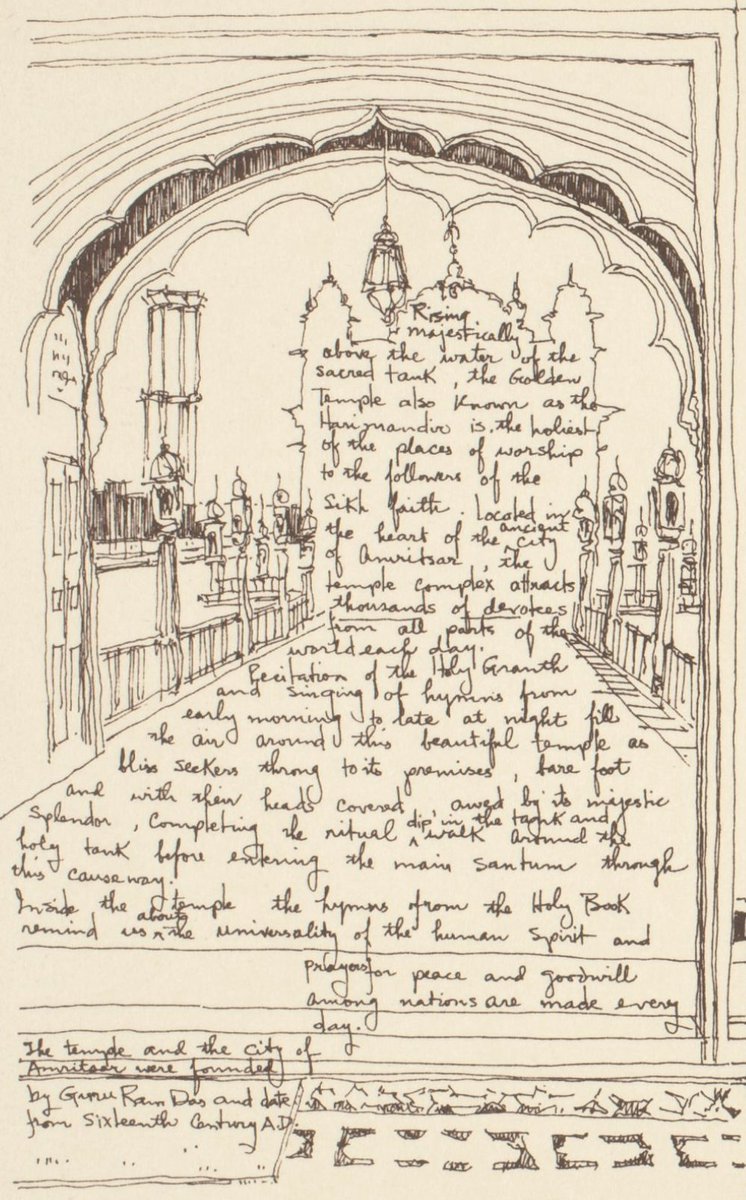 Rising
majestically
above the water of the
sacred tank, the Golden
Temple also known as the
Harimandir is the holiest
of the places of worship
to the followers of the
Sikh faith. Located in
the heart of the ancient city
of Amritsar, the
temple complex attracts
thousands of devotees
from all parts of the
world each day.
Recitation of the Holy Granth
and singing of hymns from
early morning to late at night fill
the air around this beautiful temple as
bliss seekers throng to its premises, bare foot
and with their heads covered, awed by its majestic
splendor, completing the ritual dip in the tank and walk around the
holy tank before entering the main santum through
this causeway.
Inside the temple the hymns from the Holy Book
remind us about the universality of the human spirit and
prayers for peace and goodwill
among nations are made every
day.
The temple and the city of
Amritsar were founded
by Guru Ram Das and date
from Sixteenth Century A.D.